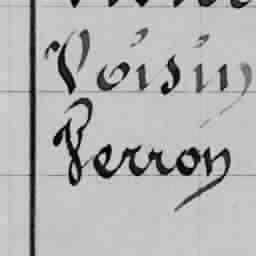 Voisin
Perron